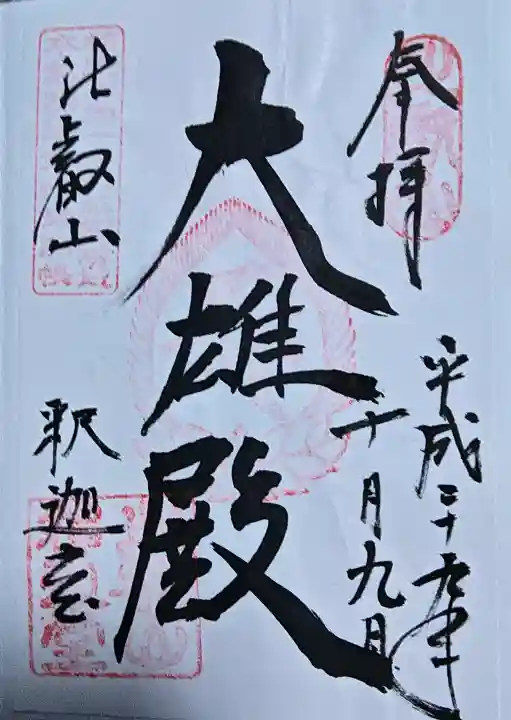 奉拝
平成二十九年
十月九日
大雄殿
比叡山
釈迦堂